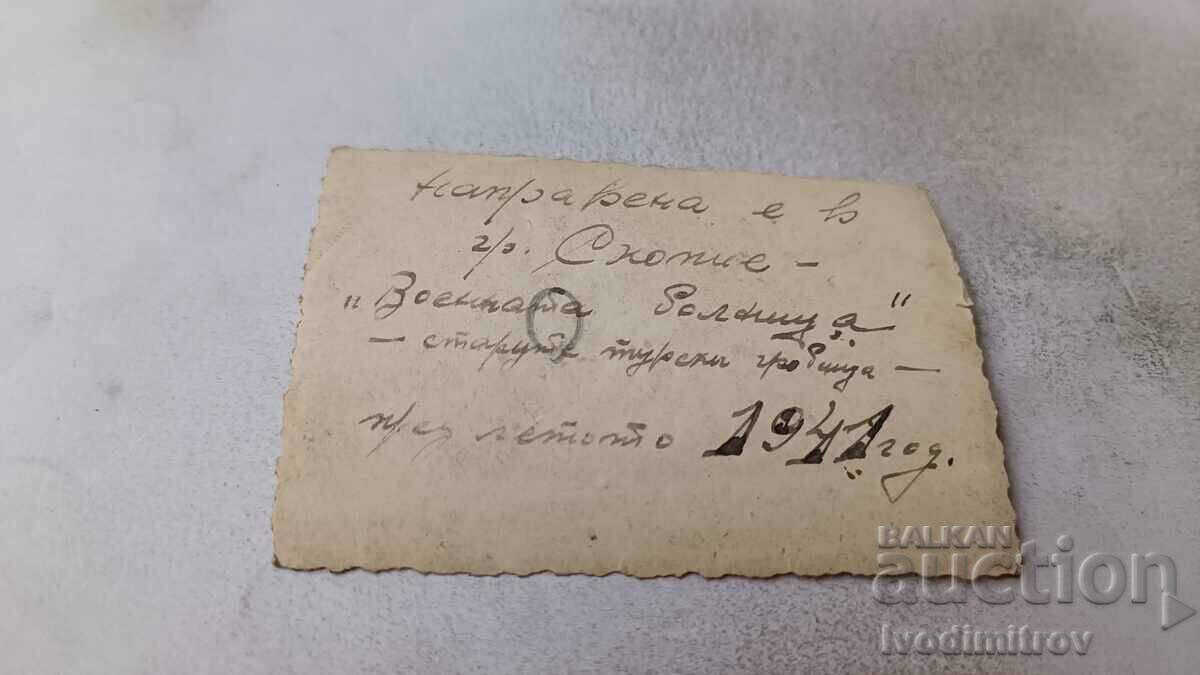 направена е в
гр. Скопие –
"Военната болница"
– старите турски гробища –
през летото 1941 год.
BALKAN
auction
Ivodimitrov